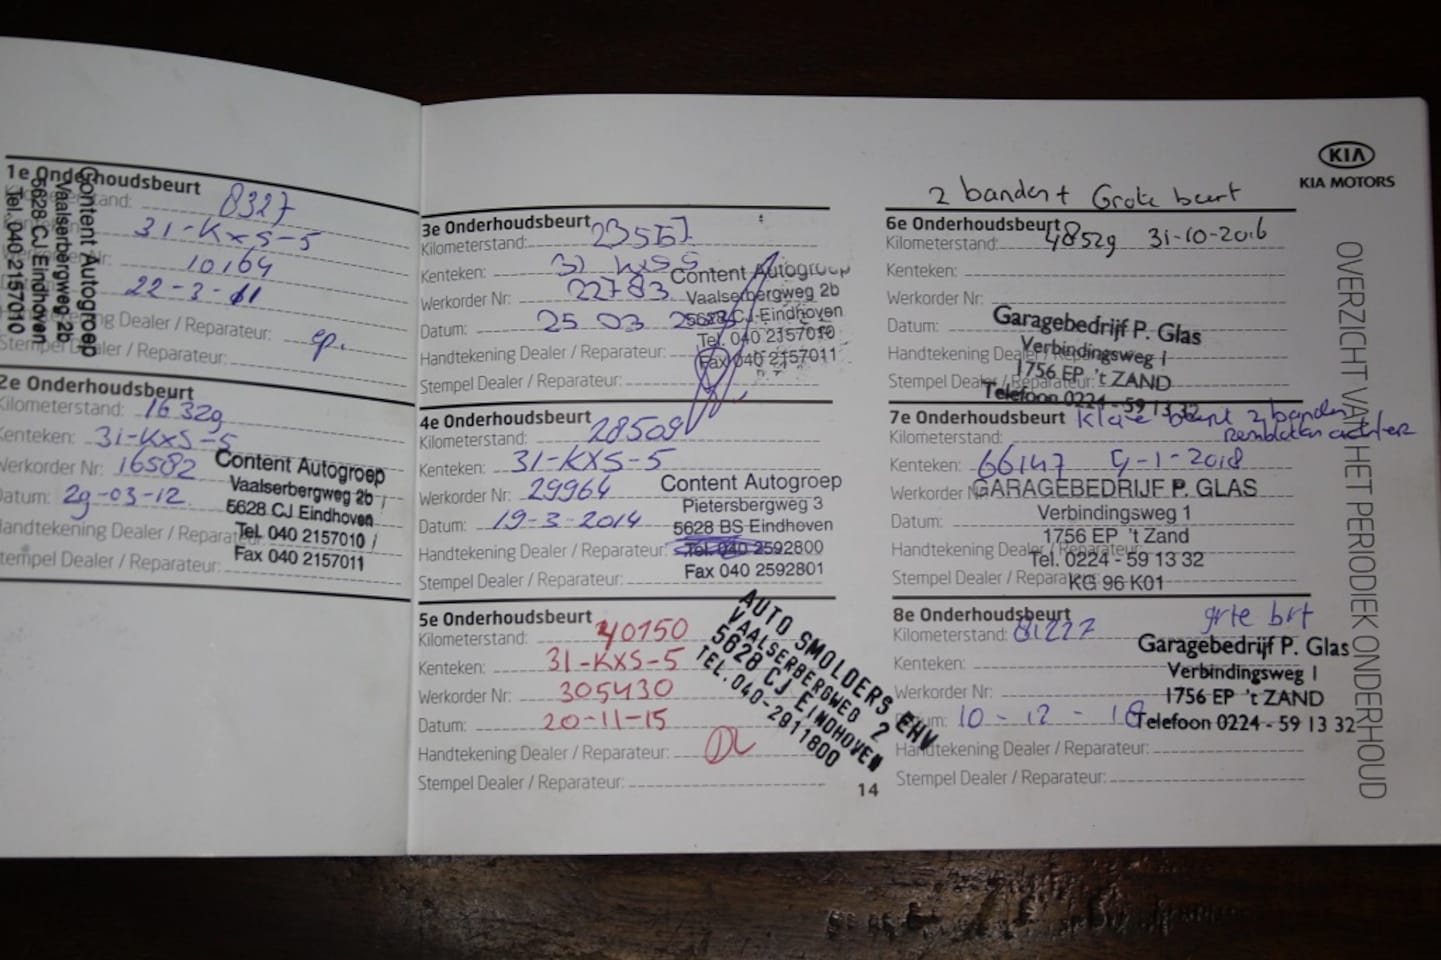 1e Onderhoudsbeurt
8327
31-KXS-5
10164
22-3-11
Handtekening Dealer / Reparateur:
Stempel Dealer / Reparateur:
Content Autogroep
Vaalserbergweg 2b
5628 CJ Eindhoven
Tel. 040 2157010
2e Onderhoudsbeurt
Kilometerstand: 16329
Kenteken: 31-KXS-5
Werkorder Nr: 16582
Datum: 29-03-12
Handtekening Dealer / Reparateur:
Stempel Dealer / Reparateur:
Content Autogroep
Vaalserbergweg 2b
5628 CJ Eindhoven
Tel. 040 2157010
Fax 040 2157011
3e Onderhoudsbeurt
Kilometerstand:
Kenteken: 31 KXS 5
Werkorder Nr: 22783
Datum: 25 03
Handtekening Dealer / Reparateur:
Stempel Dealer / Reparateur:
Content Autogroep
Vaalserbergweg 2b
5628 CJ Eindhoven
Tel. 040 2157010
Fax 040 2157011
4e Onderhoudsbeurt
Kilometerstand: 28509
Kenteken: 31-KXS-5
Werkorder Nr: 29964
Datum: 19-3-2014
Handtekening Dealer / Reparateur:
Stempel Dealer / Reparateur:
Content Autogroep
Pietersbergweg 3
5628 BS Eindhoven
Tel. 040 2592800
Fax 040 2592801
5e Onderhoudsbeurt
Kilometerstand: 40150
Kenteken: 31-KXS-5
Werkorder Nr: 305430
Datum: 20-11-15
Handtekening Dealer / Reparateur:
Stempel Dealer / Reparateur:
AUTO SMOLDERS EHV
VAALSERBERGWEG 2
5628 CJ EINDHOVEN
TEL. 040-2911800
14
KIA
KIA MOTORS
2 banden + Grote beurt
6e Onderhoudsbeurt
Kilometerstand: 48529 31-10-2016
Kenteken:
Werkorder Nr:
Datum:
Handtekening Dealer / Reparateur:
Stempel Dealer / Reparateur:
Garagebedrijf P. Glas
Verbindingsweg 1
1756 EP 't ZAND
Telefoon 0224 - 59 13 32
7e Onderhoudsbeurt beurt 2 banden
Kilometerstand: achter
Kenteken: 66147 9-1-2018
Werkorder Nr:
Datum:
Handtekening Dealer / Reparateur:
Stempel Dealer / Reparateur:
GARAGEBEDRIJF P. GLAS
Verbindingsweg 1
1756 EP 't Zand
Tel. 0224 - 59 13 32
KG 96 K01
8e Onderhoudsbeurt grte brt
Kilometerstand: 81227
Kenteken:
Werkorder Nr:
Datum: 10 - 12 - 18
Handtekening Dealer / Reparateur:
Stempel Dealer / Reparateur:
Garagebedrijf P. Glas
Verbindingsweg 1
1756 EP 't ZAND
Telefoon 0224 - 59 13 32
OVERZICHT VAN HET PERIODIEK ONDERHOUD